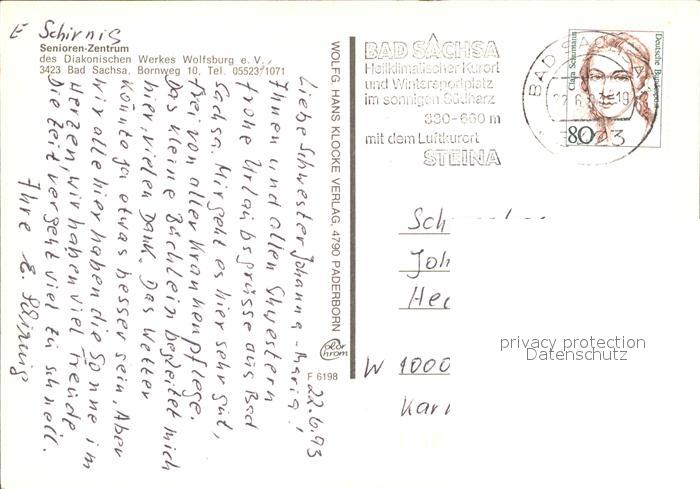 E Schirnig
Senioren-Zentrum
des Diakonischen Werkes Wolfsburg e. V.,
3423 Bad Sachsa, Bornweg 10, Tel. 05523/1071
22.6.93
Liebe Schwester Johanna-Maria!
Ihnen und allen Schwestern
frohe Urlaubsgrüsse aus Bad
Sachsa. Mir geht es hier sehr gut,
frei von aller Krankenpflege.
Das kleine Büchlein begleitet mich
hier, vielen Dank. Das Wetter
könnte ja etwas besser sein. Aber
wir alle hier haben die Sonne im
Herzen, wir haben viel Freude
Die Zeit vergeht viel zu schnell.
Ihre E. Schirnig
WOLFG. HANS KLOCKE VERLAG, 4790 PADERBORN
color chrom
F 6198
BAD SACHSA
Heilklimatischer Kurort
und Wintersportplatz
im sonnigen Südharz
330-660 m
mit dem Luftkurort
STEINA
BAD SACHSA
22.6.93-19
3423
Clara Schumann
Deutsche Bundespost
80
Sch
Joh
He
W 1000
Kar
privacy protection
Datenschutz